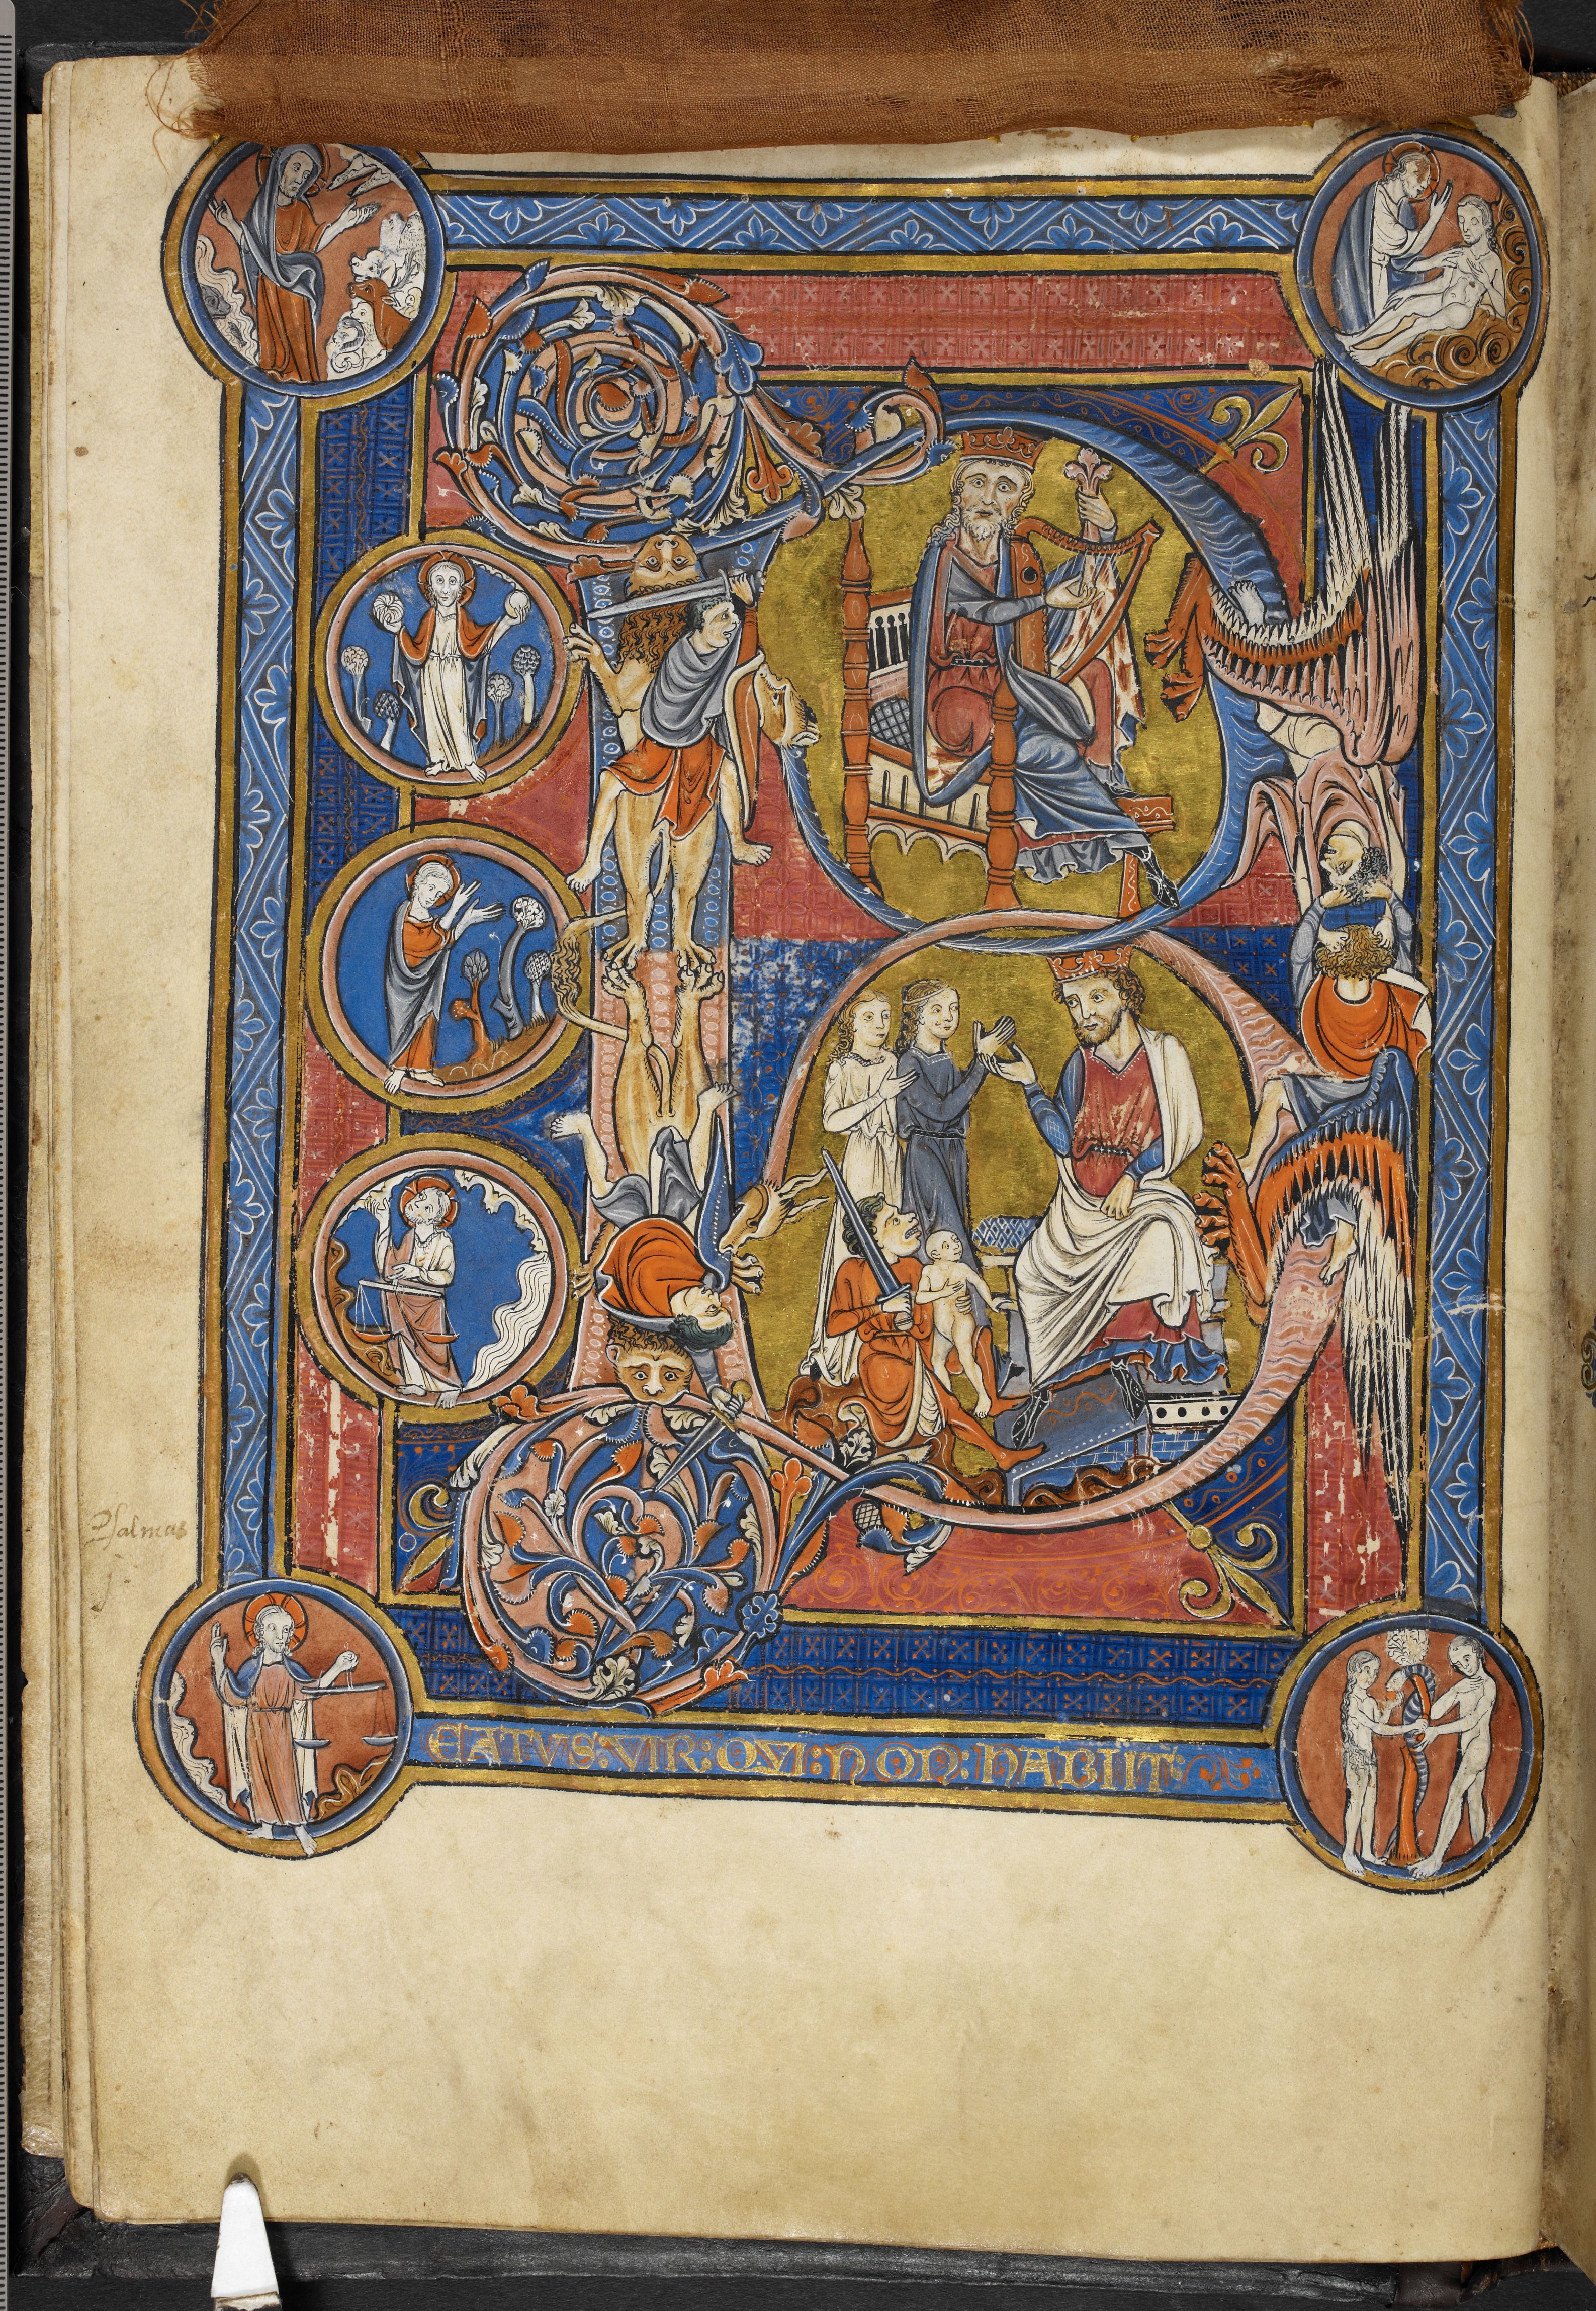 Psalmus
EATVS: VIR: QVI: NON: HABIIT: